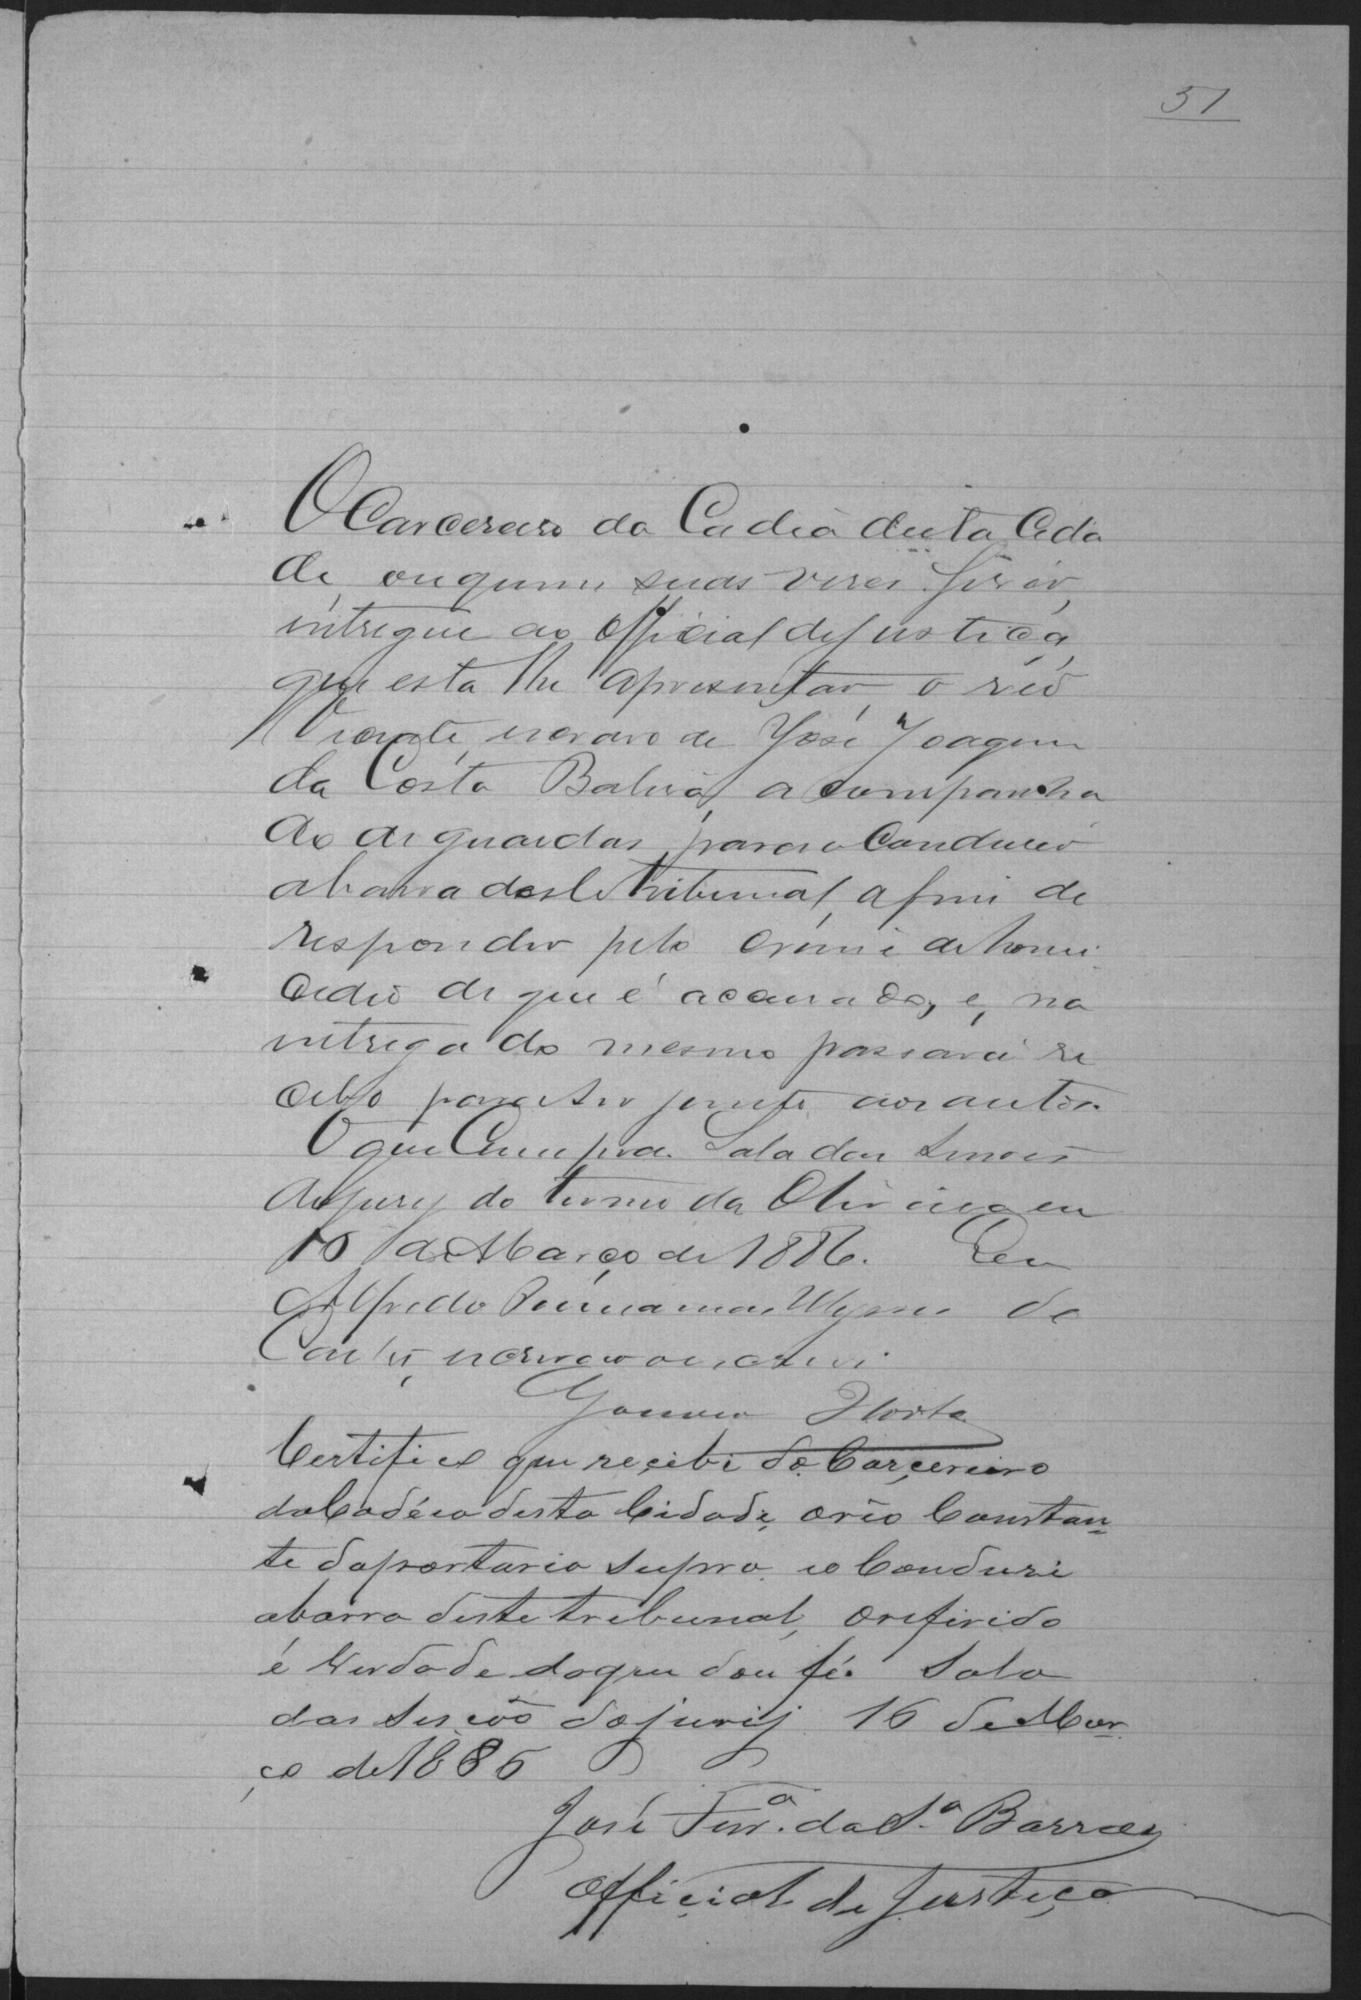 51
O Carcereiro da Cadêa desta Cida
de, ou quem suas vezes fizér,
intregue ao Official de Justiça,
que esta lhe apresentar, o réo
Vicente, escravo de José Joaquim
da Costa Bahia, acompanha
do de guardas, para o conduzir
a barra deste tribunal, afim de
responder pelo crime de homi
cidio de que é accusado, e, na
intrega do mesmo passará re
cibo para ser junto aos autos.
O que Cumpra. Sala das Sessões
do jury do termo da Oliveira em
16 de Março de 1886. Eu
Alfredo de
Couto, escrivão escrevi.
Horta
Certifico que recebi do Carçereiro
da Cadéia desta Cidade, o réo Constan
te da portaria supra, e o Conduzi
a barra deste tribunal, o referido
é Verdade do que dou fé. Sala
das Sesções do jurij 16 de Mar
ço de 1886
José Ferr.ª da S.ª Barros
Official de Justiça